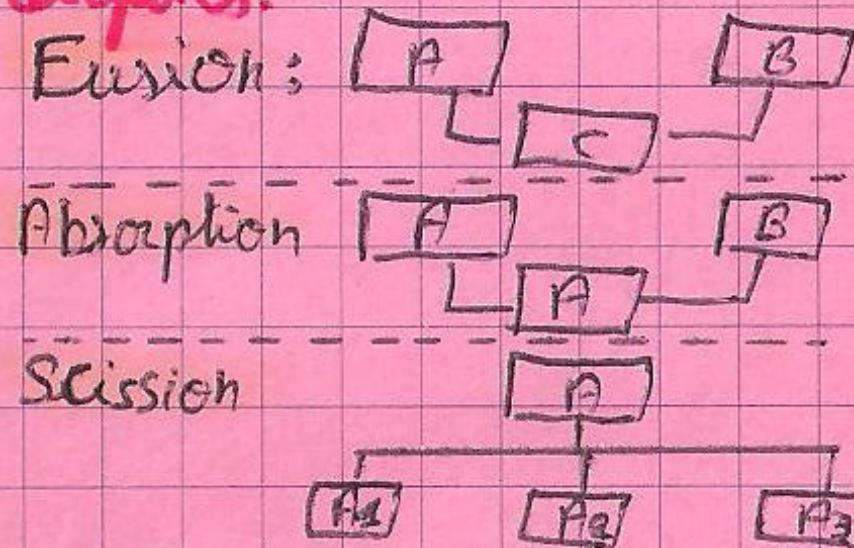 Fusion :
A
B
C
Absorption
A
B
A
Scission
A
A1
A2
A3